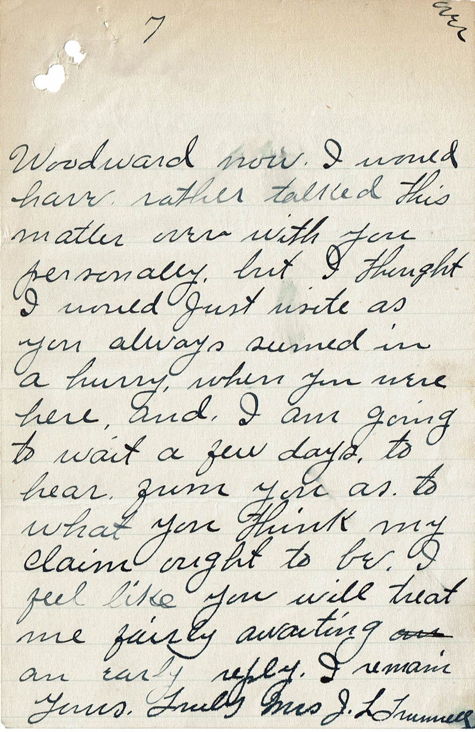 7
over
Woodward now. I would
have. rather talked this
matter over with you
personally, but I thought
I would Just write as
you always seemed in
a hurry, when you were
here, and. I am going
to wait a few days, to
hear. from you as. to
what you think my
claim ought to be. I
feel like you will treat
me fairly awaiting an
an early reply. I remain
Yours. Truly Mrs J. L